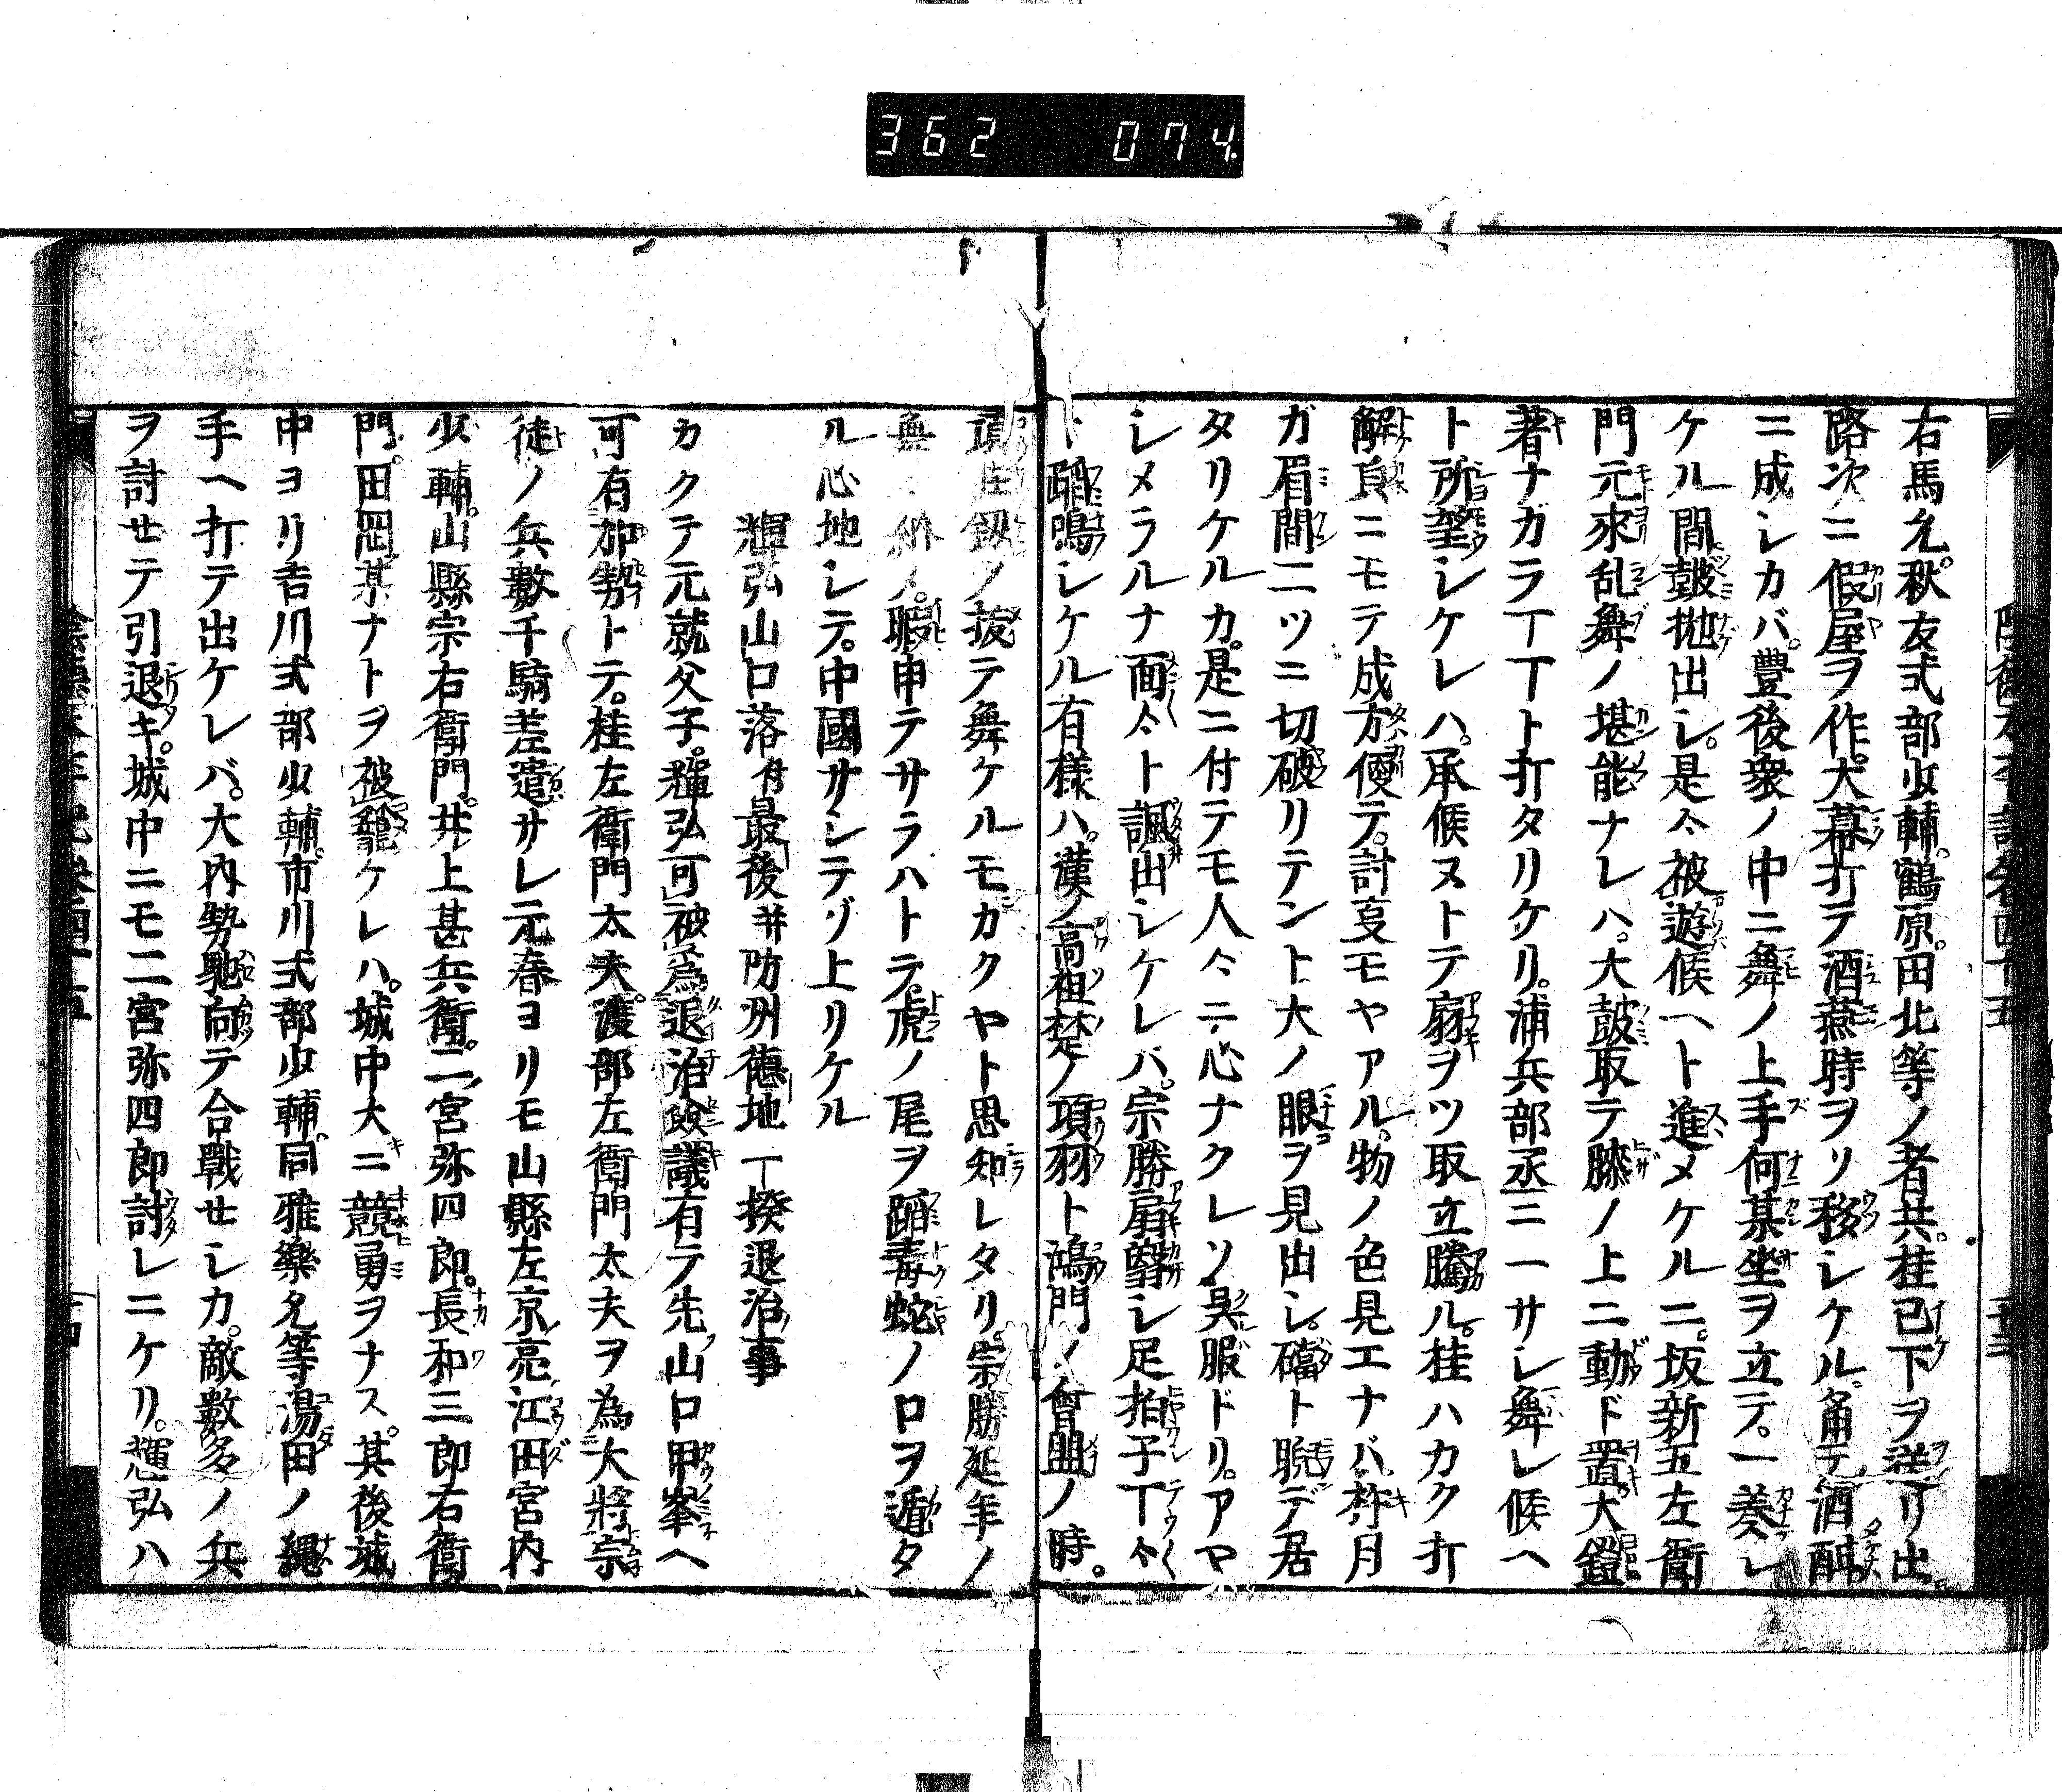 362 074
右馬允。秋友式部少輔。鶴原。田北等ノ者共。桂已下ヲ送リ出
路次ニ假屋ヲ作。大幕打テ酒燕時ヲソ移シケル。角テ酒酣
ニ成シカバ。豊後衆ノ中ニ舞ノ上手何某坐ヲ立テ。一奏レ
ケル間鼓抛出シ。是々被遊候ヘト進メケルニ。坂新五左衛
門元來乱舞ノ堪能ナレハ。大鼓取テ膝ノ上ニ動ド置大鎧
著ナガラ丁丁ト打タリケリ。浦兵部丞ニ一サシ舞レ候ヘ
ト所望シケレハ。承候ヌトテ扇ヲツ取立騰ル。桂ハカク打
解貞ニモテ成方便テ。計㕝モヤアル。物ノ色見エナバ。祢月
ガ眉間二ツニ切破リテント大ノ眼ヲ見出シ。礑ト睨デ居
タリケルカ。是ニ付テモ人々ニ心ナクレソ呉服ドリ。アヤ
シメラルナ面々ト諷出シケレバ。宗勝扇翳シ足拍子丁々
ト蹈鳴シケル有樣ハ。漢ノ高祖楚ノ項羽ト鴻門ノ會盟ノ時。
項庄釼ノ抜テ舞ケルモカクヤト思知レタリ。宗勝延年ノ
舞ノ。暇申テサラハトテ。虎ノ尾ヲ蹈毒蛇ノ口ヲ遁タ
ル心地シテ。中國サシテゾ上リケル
輝弘山口落付最後并防州德地一揆退治事
カクテ元就父子。輝弘可被爲退治僉議有テ先山口甲峯ヘ
可有加勢トテ。桂左衛門太夫。渡部左衛門太夫ヲ為大將宗
徒ノ兵數千騎差遣サレ元春ヨリモ山縣左京亮。江田宮内
少輔。山縣宗右衛門。井上甚兵衛。二宮弥四郎。長和三郎右衛
門。田岡某ナトヲ被籠ケレハ。城中大ニ競勇ヲナス。其後城
中ヨリ吉川式部少輔。市川式部少輔。同雅樂允等湯田ノ繩
手ヘ打テ出ケレバ。大内勢馳向テ合戰セシカ。敵數多ノ兵
ヲ討セテ引退キ。城中ニモ二宮弥四郎討レニケリ。輝弘ハ